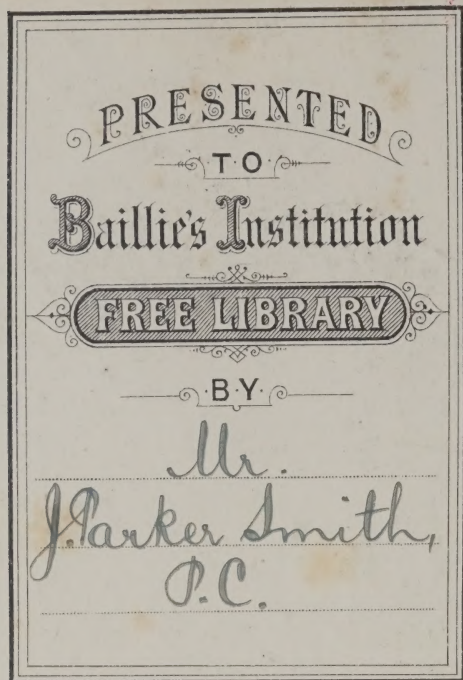 PRESENTED
·TO·
Baillie's Institution
FREE LIBRARY
·BY·
Mr.
J. Parker Smith,
P.C.